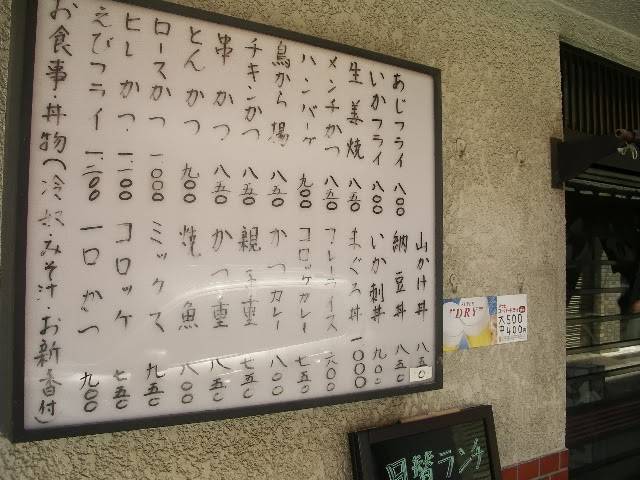 山かけ丼 八五〇
あじフライ 八〇〇 納豆丼 八五〇
いかフライ 八〇〇 いか刺丼 九〇〇
生姜焼 八五〇 まぐろ丼 一〇〇〇
メンチかつ 八五〇 カレーライス 六〇〇
ハンバーグ 九〇〇 コロッケカレー 七五〇
鳥から揚 八五〇 かつカレー 八〇〇
チキンかつ 八五〇 親子重 七五〇
串かつ 八五〇 かつ重 八五〇
とんかつ 九〇〇 焼魚 八〇〇
ロースかつ 一、〇〇〇 ミックス 九五〇
ヒレかつ 一、一〇〇 コロッケ 七五〇
えびフライ 一、二〇〇 一口かつ 九〇〇
お食事・丼物(冷奴・みそ汁・お新香付)
"DRY"
大500円
中400円
日替ランチ